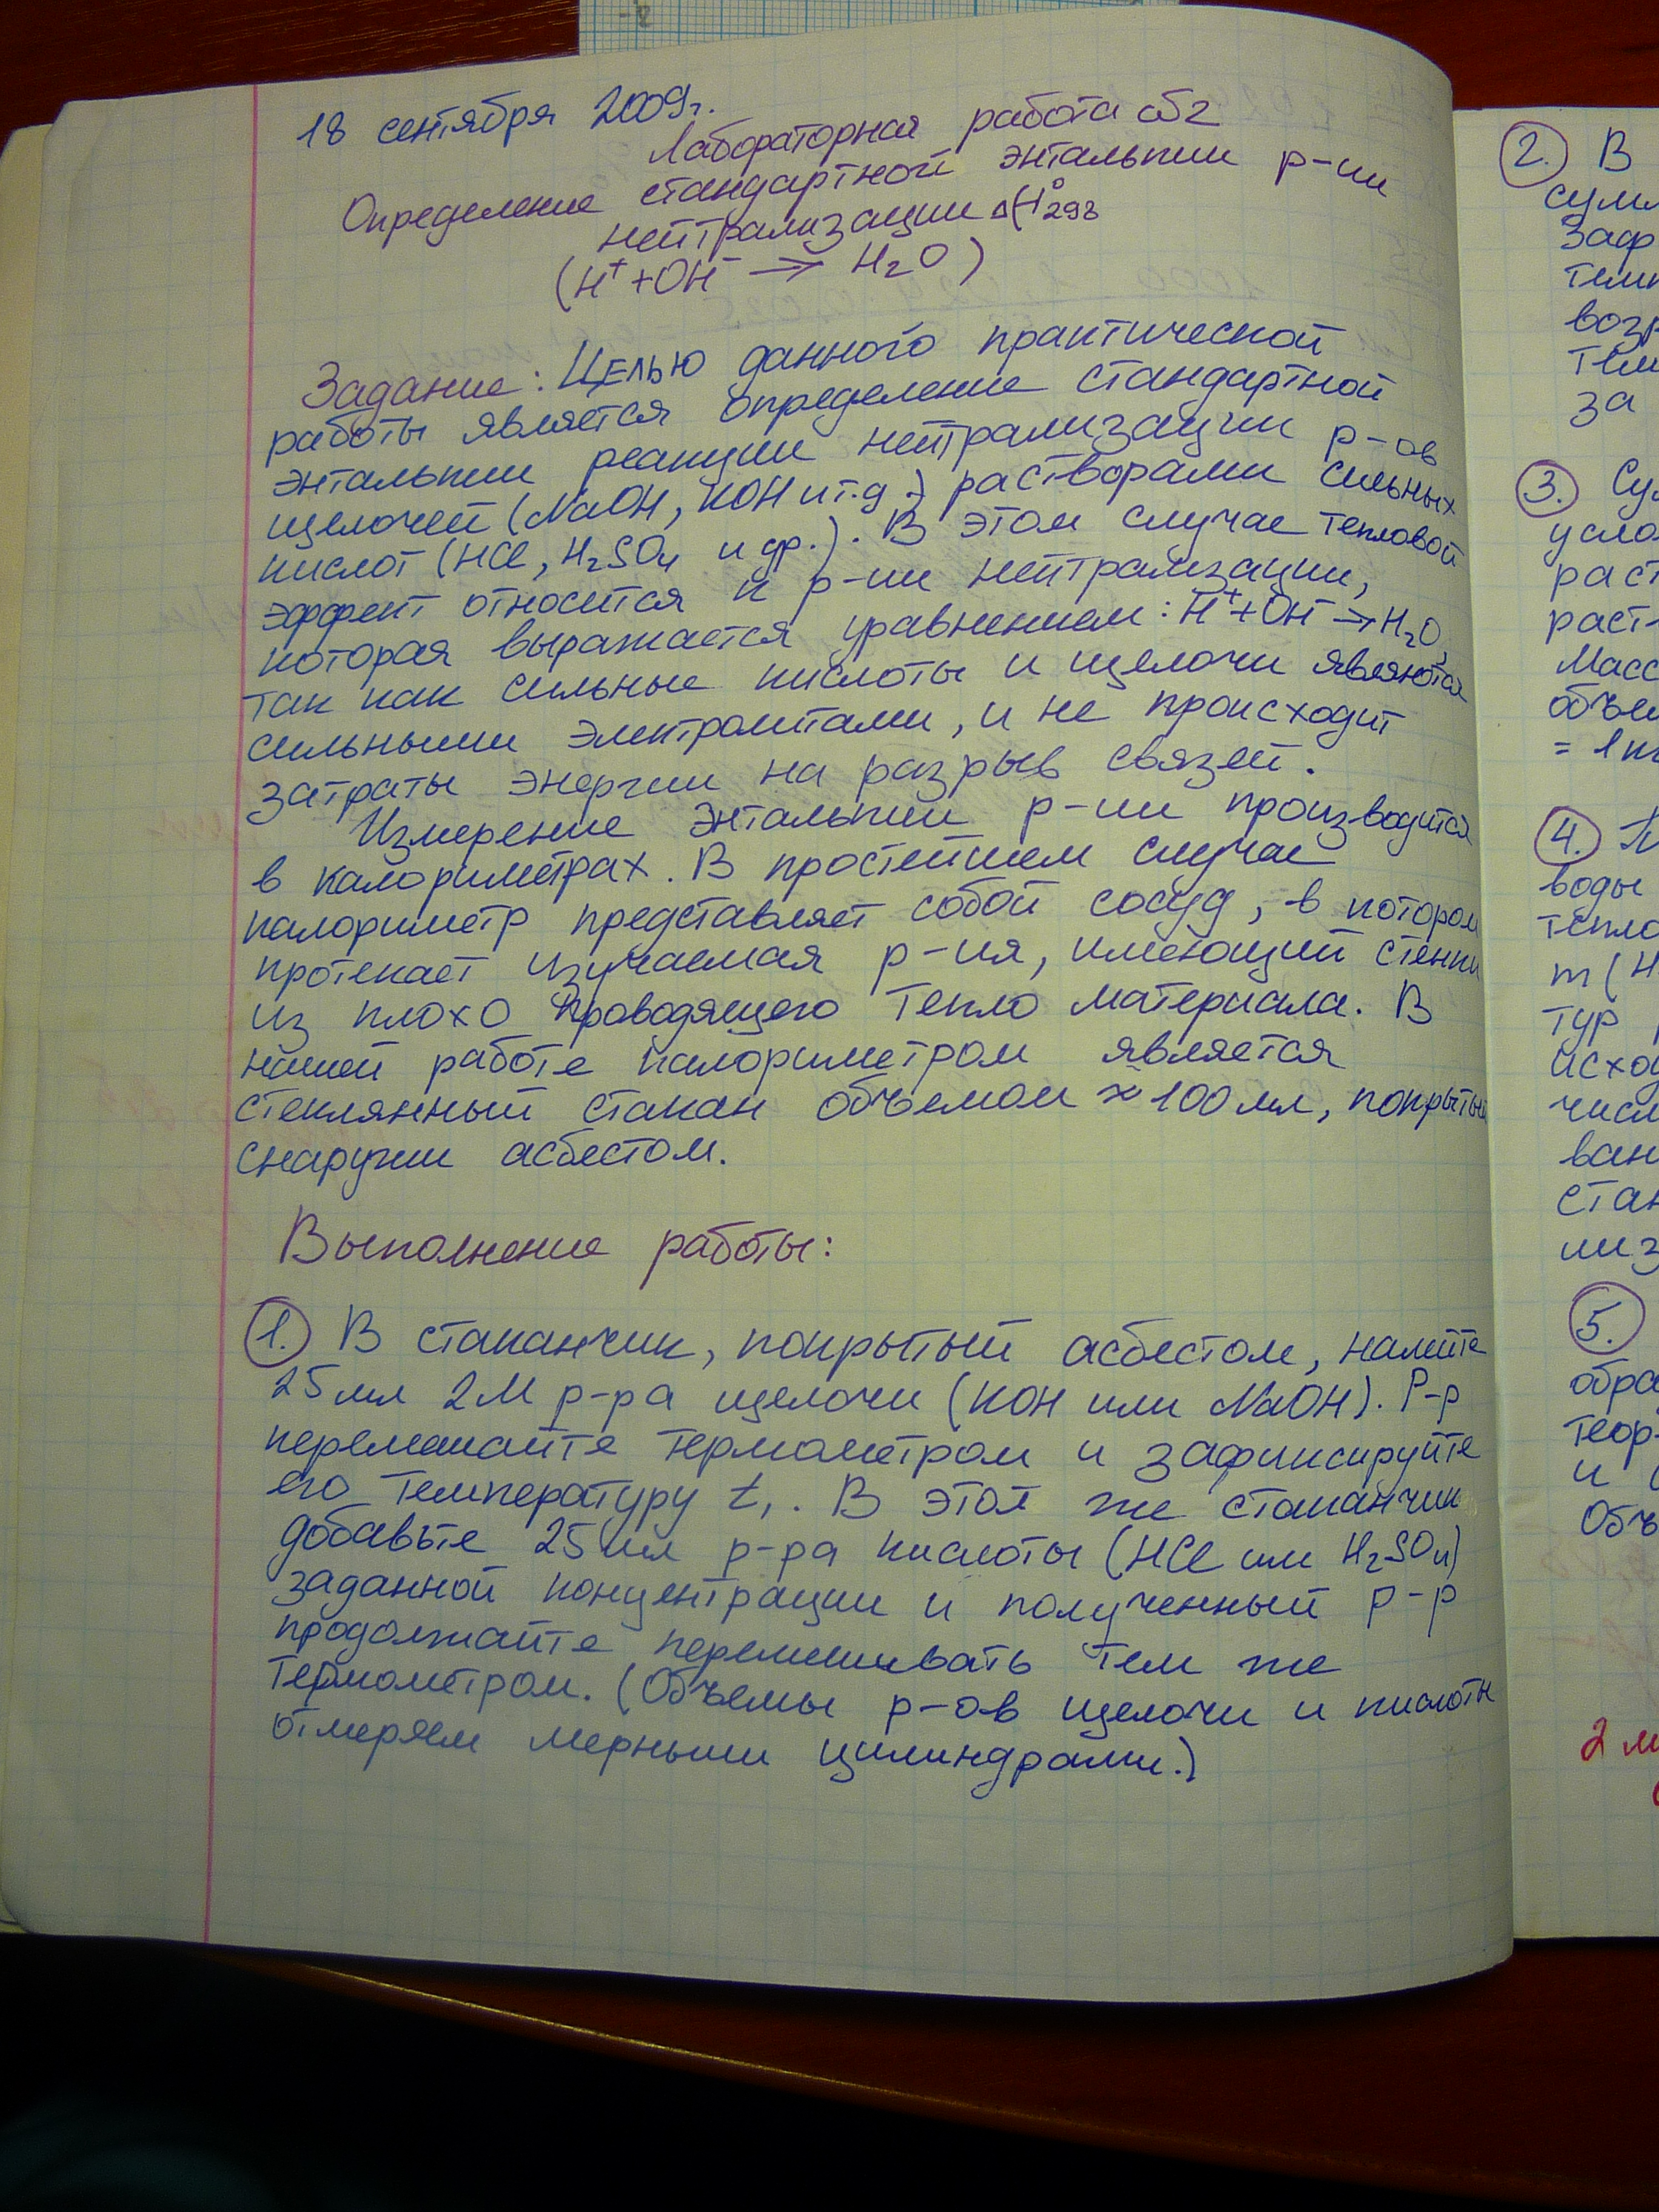 18 сентября 2009г.
Лабораторная работа №2
Определение стандартной энтальпии р-ии
нейтрализации ΔH°298
(H⁺+OH⁻ → H₂O)
Задание: Целью данного практической
работы является определение стандартной
энтальпии реакции нейтрализации р-ов
щелочей (NaOH, KOH и т.д.) растворами сильных
кислот (HCl, H₂SO₄ и др.). В этом случае тепловой
эффект относится к р-ии нейтрализации,
которая выражается уравнением: H⁺+OH⁻→H₂O,
так как сильные кислоты и щелочи являются
сильными электролитами, и не происходит
затраты энергии на разрыв связей.
Измерение энтальпии р-ии производится
в калориметрах. В простейшем случае
калориметр представляет собой сосуд, в котором
протекает изучаемая р-ия, имеющий стенки
из плохо проводящего тепло материала. В
нашей работе калориметром является
стеклянный стакан объемом ≈100мл, покрытый
снаружи асбестом.
Выполнение работы:
1. В стаканчик, покрытый асбестом, налейте
25мл 2М р-ра щелочи (KOH или NaOH). Р-р
перемешайте термометром и зафиксируйте
его температуру t₁. В этот же стаканчик
добавьте 25мл р-ра кислоты (HCl или H₂SO₄)
заданной концентрации и полученный р-р
продолжайте перемешивать тем же
термометром. (Объемы р-ов щелочи и кислоты
отмеряем мерными цилиндрами.)
2. В
3.
4.
воды
m(H
5.